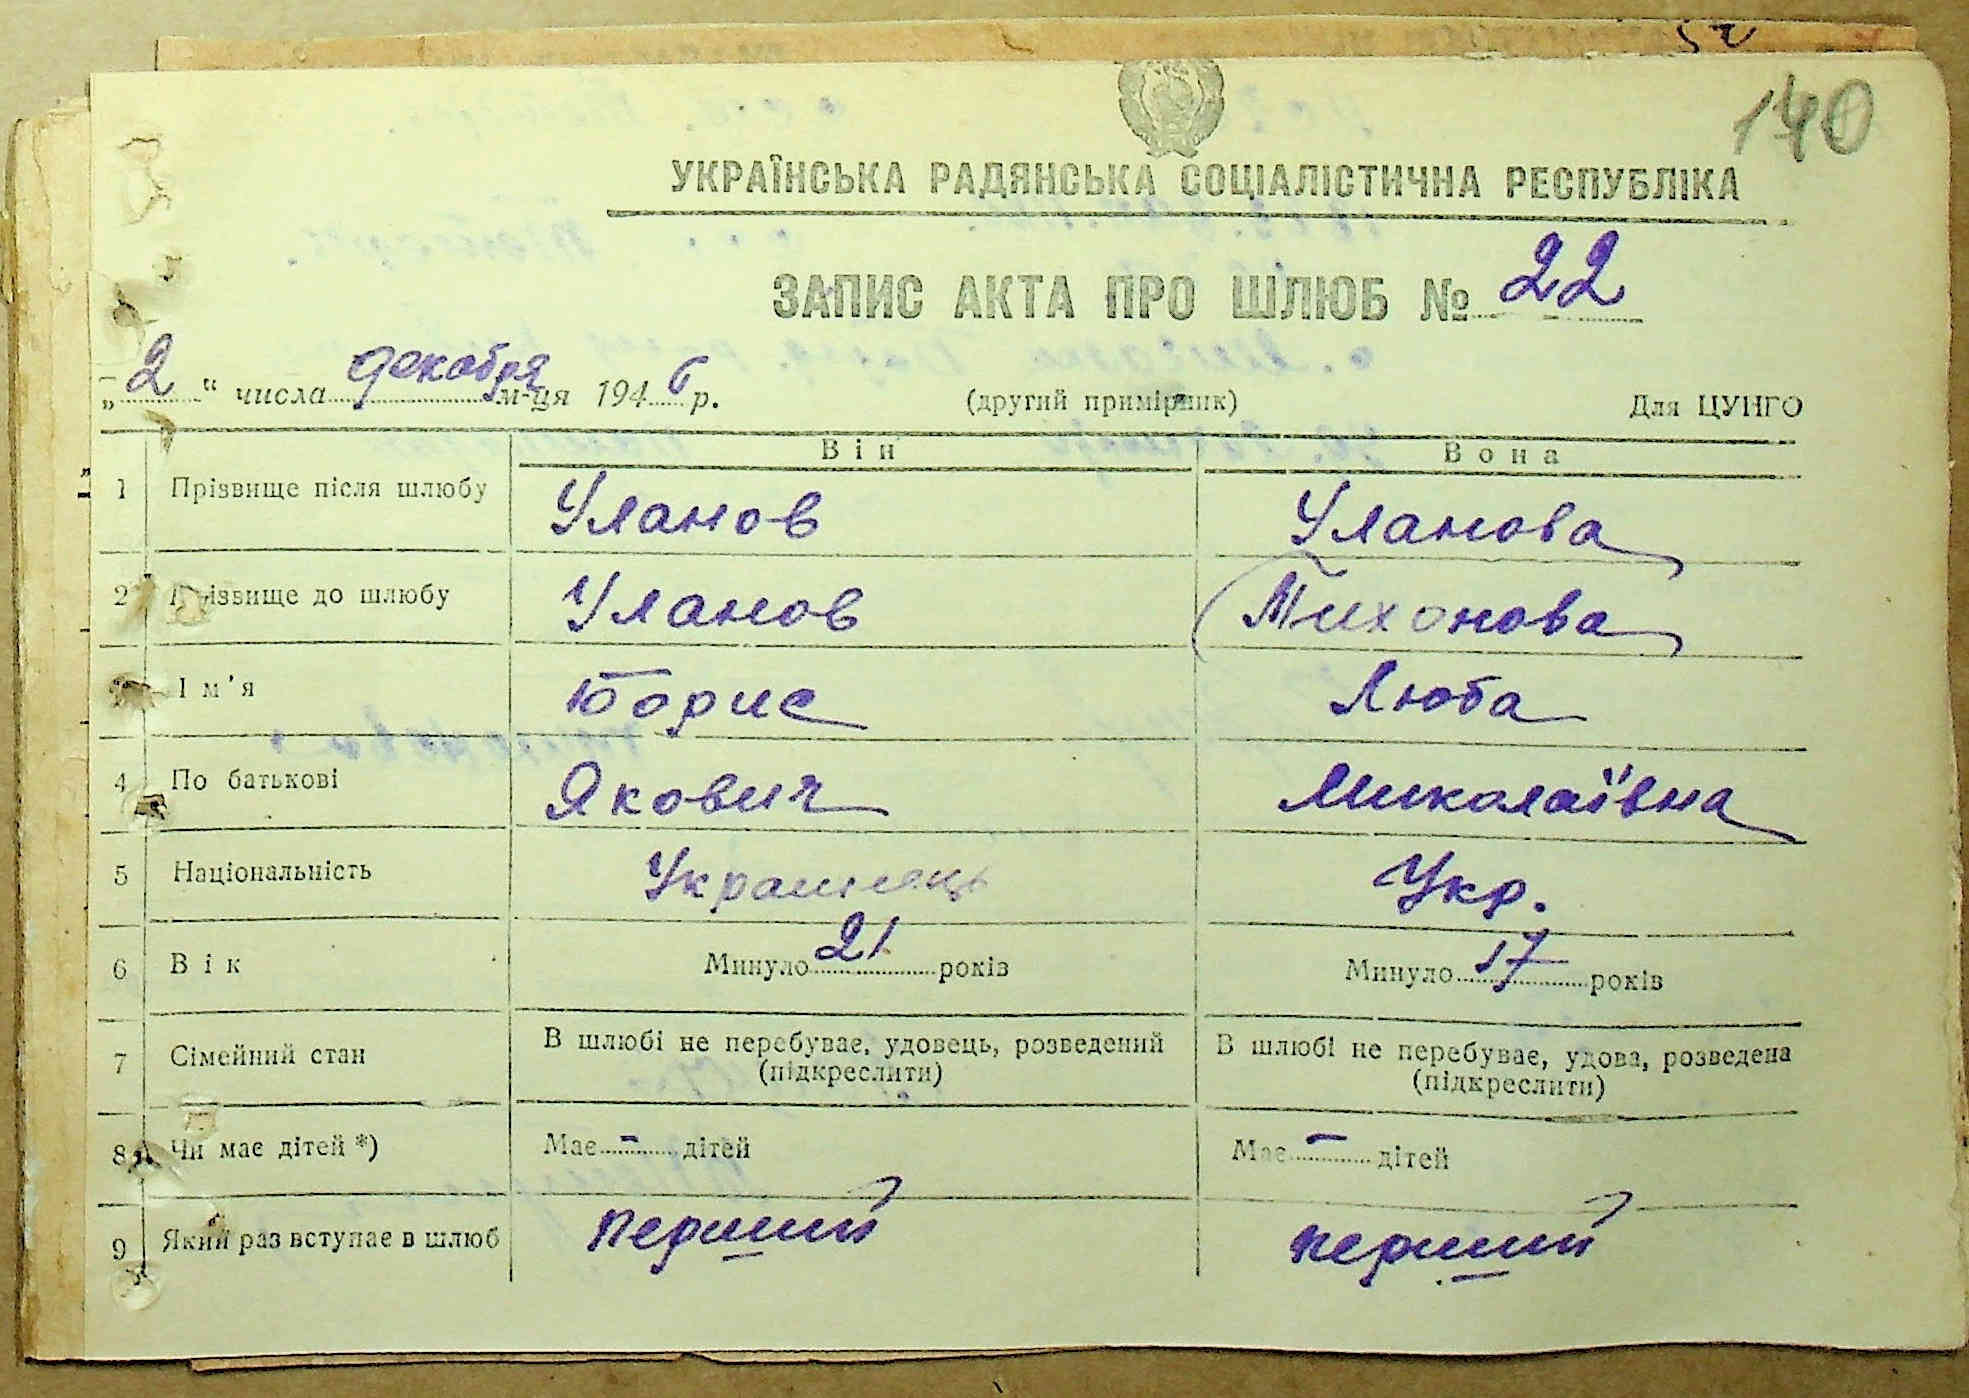 140
УКРАЇНСЬКА РАДЯНСЬКА СОЦІАЛІСТИЧНА РЕСПУБЛІКА
ЗАПИС АКТА ПРО ШЛЮБ № 22
„2“ числа декабря м-ця 1946 р. (другий примірник) Для ЦУНГО
Він Вона
1 Прізвище після шлюбу Уланов Уланова
2 Прізвище до шлюбу Уланов Тихонова
3 Ім'я Борис Люба
4 По батькові Якович Миколаївна
5 Національність Українець Укр.
6 Вік Минуло 21 років Минуло 17 років
7 Сімейний стан В шлюбі не перебуває, удовець, розведений (підкреслити) В шлюбі не перебуває, удова, розведена (підкреслити)
8 Чи має дітей *) Має - дітей Має - дітей
9 Який раз вступає в шлюб перший перший